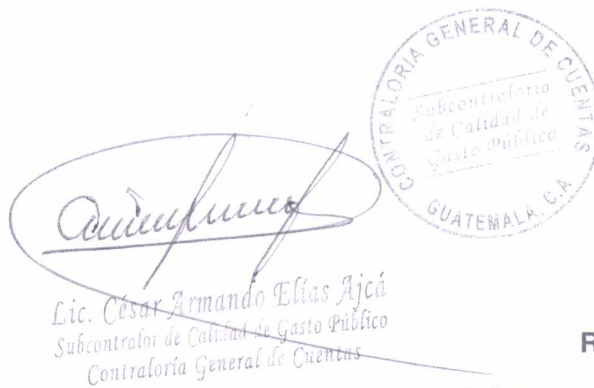 CONTRALORIA GENERAL DE CUENTAS
Subcontraloria
de Calidad de
Gasto Público
GUATEMALA, C.A.
Lic. César Armando Elías Ajcá
Subcontralor de Calidad de Gasto Público
Contraloría General de Cuentas
R